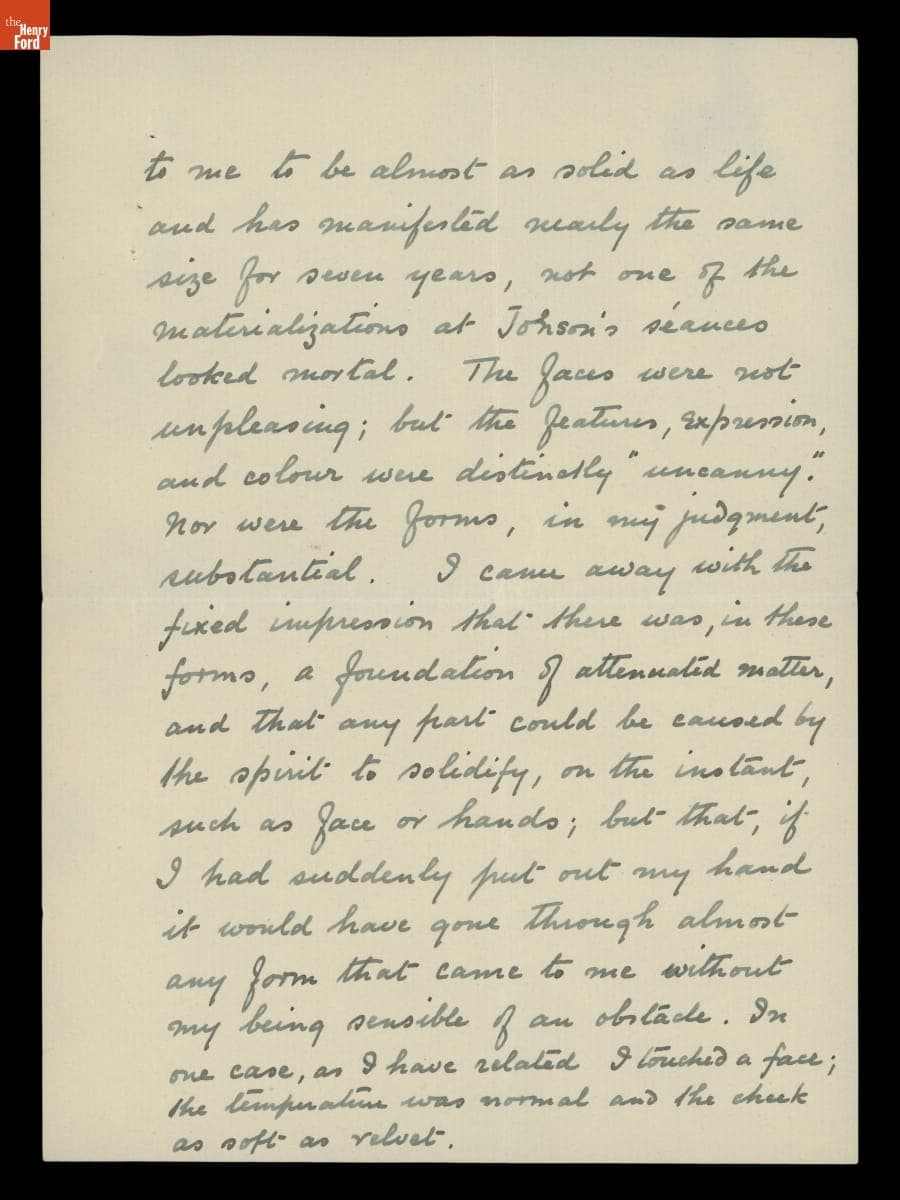 the
Henry
Ford
to me to be almost as solid as life
and has manifested nearly the same
size for seven years, not one of the
materializations at Johson's séances
looked mortal. The faces were not
unpleasing; but the features, expression,
and colour were distinctly "uncanny."
Nor were the forms, in my judgment,
substantial. I came away with the
fixed impression that there was, in these
forms, a foundation of attenuated matter,
and that any part could be caused by
the spirit to solidify, on the instant,
such as face or hands; but that, if
I had suddenly put out my hand
it would have gone through almost
any form that came to me without
my being sensible of an obstacle. In
one case, as I have related I touched a face;
the temperature was normal and the cheek
as soft as velvet.